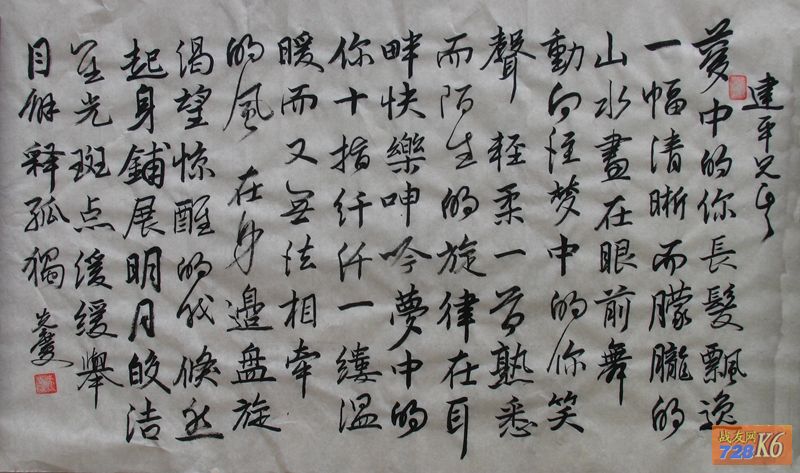 建平兄正
夢中的你長髮飄逸
一幅清晰而朦朧的
山水畫在眼前舞
動向往梦中的你笑
聲輕柔一首熟悉
而陌生的旋律在耳
畔快樂呻吟夢中的
你十指纤纤一縷温
暖而又无法相牵
的風在身邊盘旋
渴望惊醒的我倏然
起身鋪展明月皎洁
星光斑点缓缓舉
目解释孤獨
战友网
728 K6